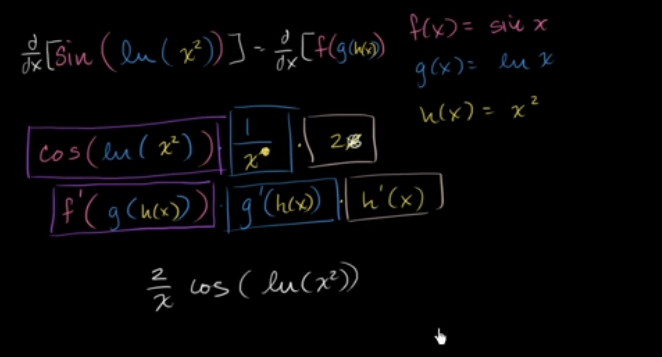 d/dx [sin(ln(x²))] = d/dx [f(g(h(x))
f(x) = sin x
g(x) = ln x
h(x) = x²
cos(ln(x²)) · 1/x · 2
f'(g(h(x))) · g'(h(x)) · h'(x)
2/x cos(ln(x²))